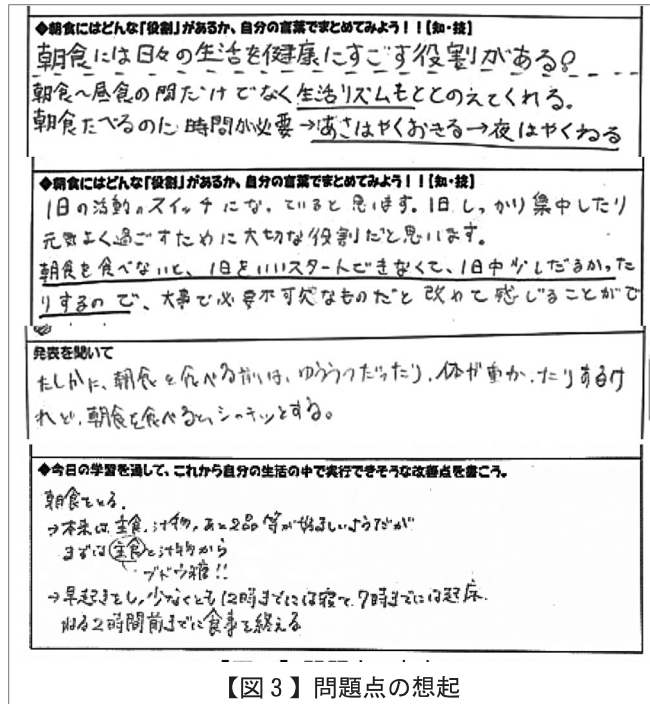 ◆朝食にはどんな「役割」があるか、自分の言葉でまとめてみよう！！【知・技】
朝食には日々の生活を健康にすごす役割がある？
朝食〜昼食の間だけでなく生活リズムもととのえてくれる。
朝食たべるのに時間が必要→あさはやくおきる→夜はやくねる
◆朝食にはどんな「役割」があるか、自分の言葉でまとめてみよう！！【知・技】
1日の活動のスイッチになっていると思います。1日しっかり集中したり
元気よく過ごすために大切な役割だと思います。
朝食を食べないと、1日をいいスタートできなくて、1日中少しだるかった
りするので、大事で必要不可欠なものだと改めて感じることがで
発表を聞いて
たしかに、朝食を食べる前は、ゆううつだったり、体が重かったりするけ
れど、朝食を食べると、シャキッとする。
◆今日の学習を通して、これから自分の生活の中で実行できそうな改善点を書こう。
朝食をとる。
→本来は、主食、汁物、あと2品等が好ましいようだが
まずは主食と汁物から
ブドウ糖!!
→早起きをし、少なくとも12時までには寝て、7時までには起床
ねる2時間前までに食事を終える
【図3】問題点の想起